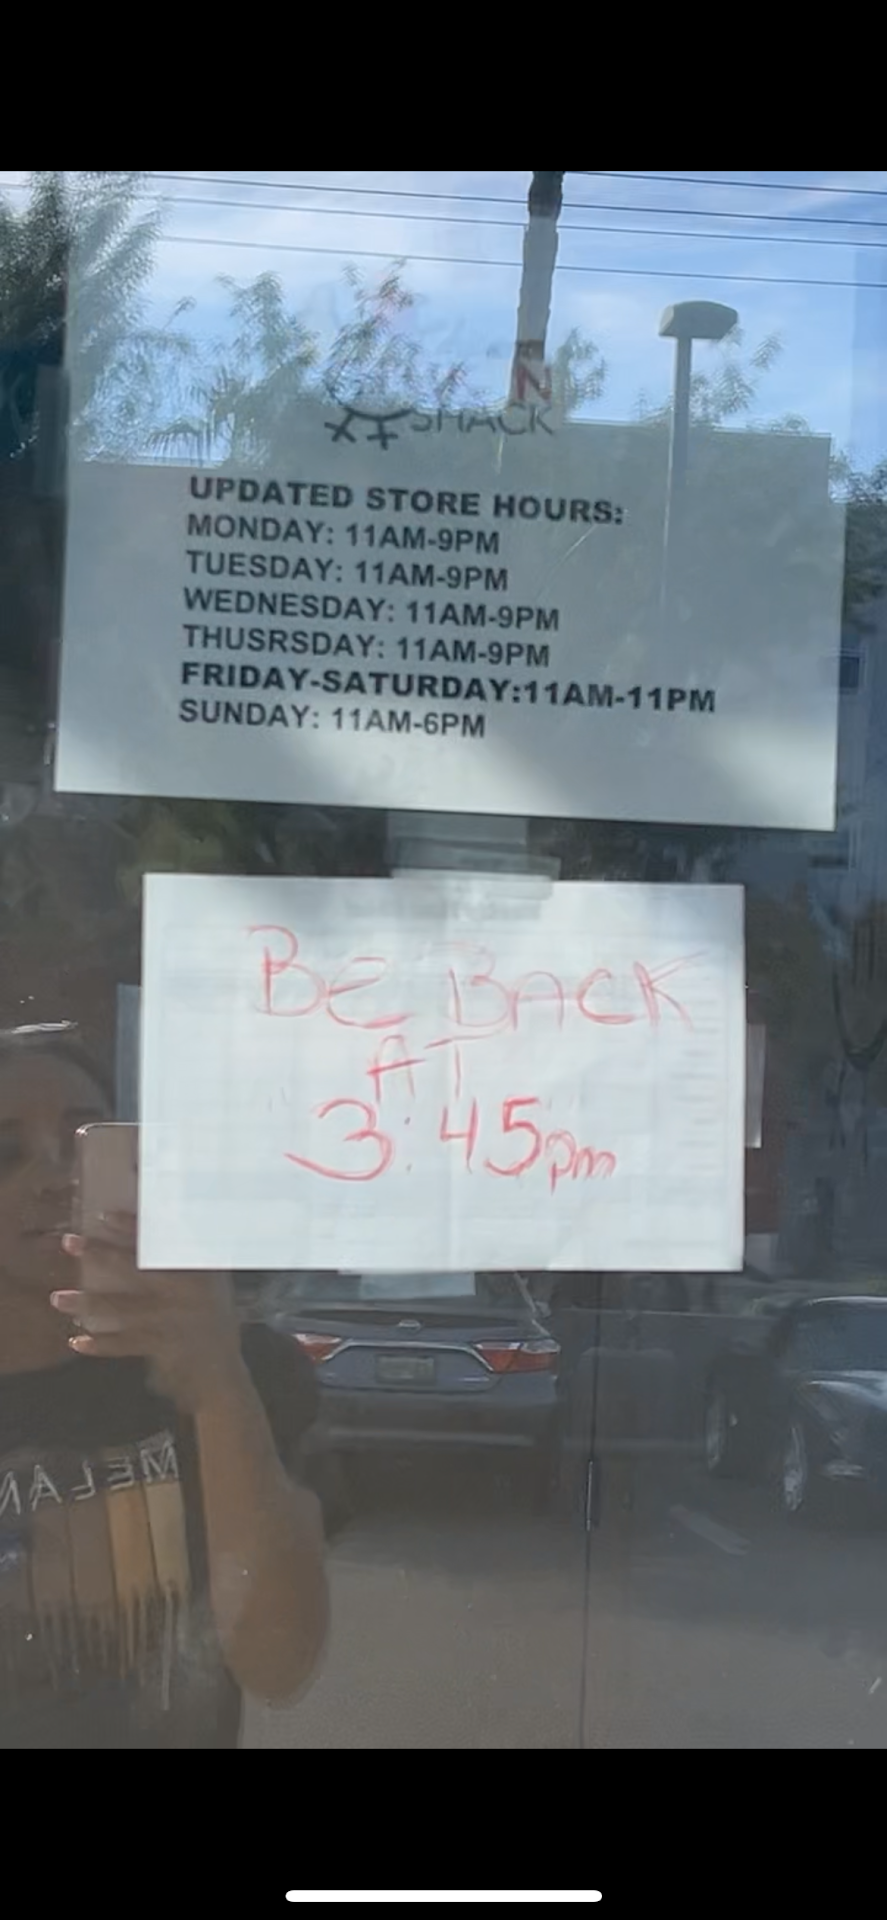 N
SHACK
UPDATED STORE HOURS:
MONDAY: 11AM-9PM
TUESDAY: 11AM-9PM
WEDNESDAY: 11AM-9PM
THUSRSDAY: 11AM-9PM
FRIDAY-SATURDAY:11AM-11PM
SUNDAY: 11AM-6PM
BE BACK
AT
3:45pm
MELAN